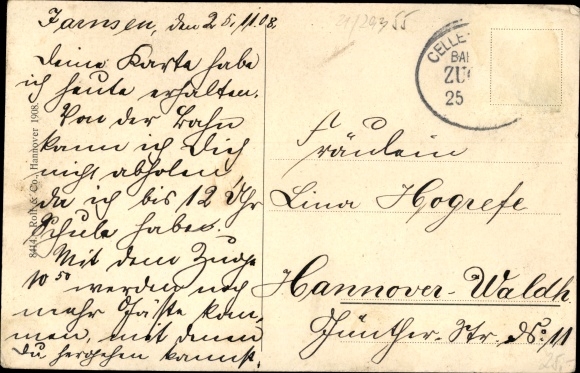 Jarnsen, den 25.11.08.
Deine Karte habe
ich heute erhalten.
Von der Bahn
kann ich Dich
nicht abholen
da ich bis 12 Uhr
Schule habe.
Mit dem Zuge
10 50 werden noch
mehr Gäste kom-
men, mit denen
Du hergehen kannst.
8414. Roll & Co., Hannover 1908.
55
CELLE
BA
ZU
25
Fräulein
Lina Hogrefe
Hannover-Waldh.
Günther-Str. 11
25,-